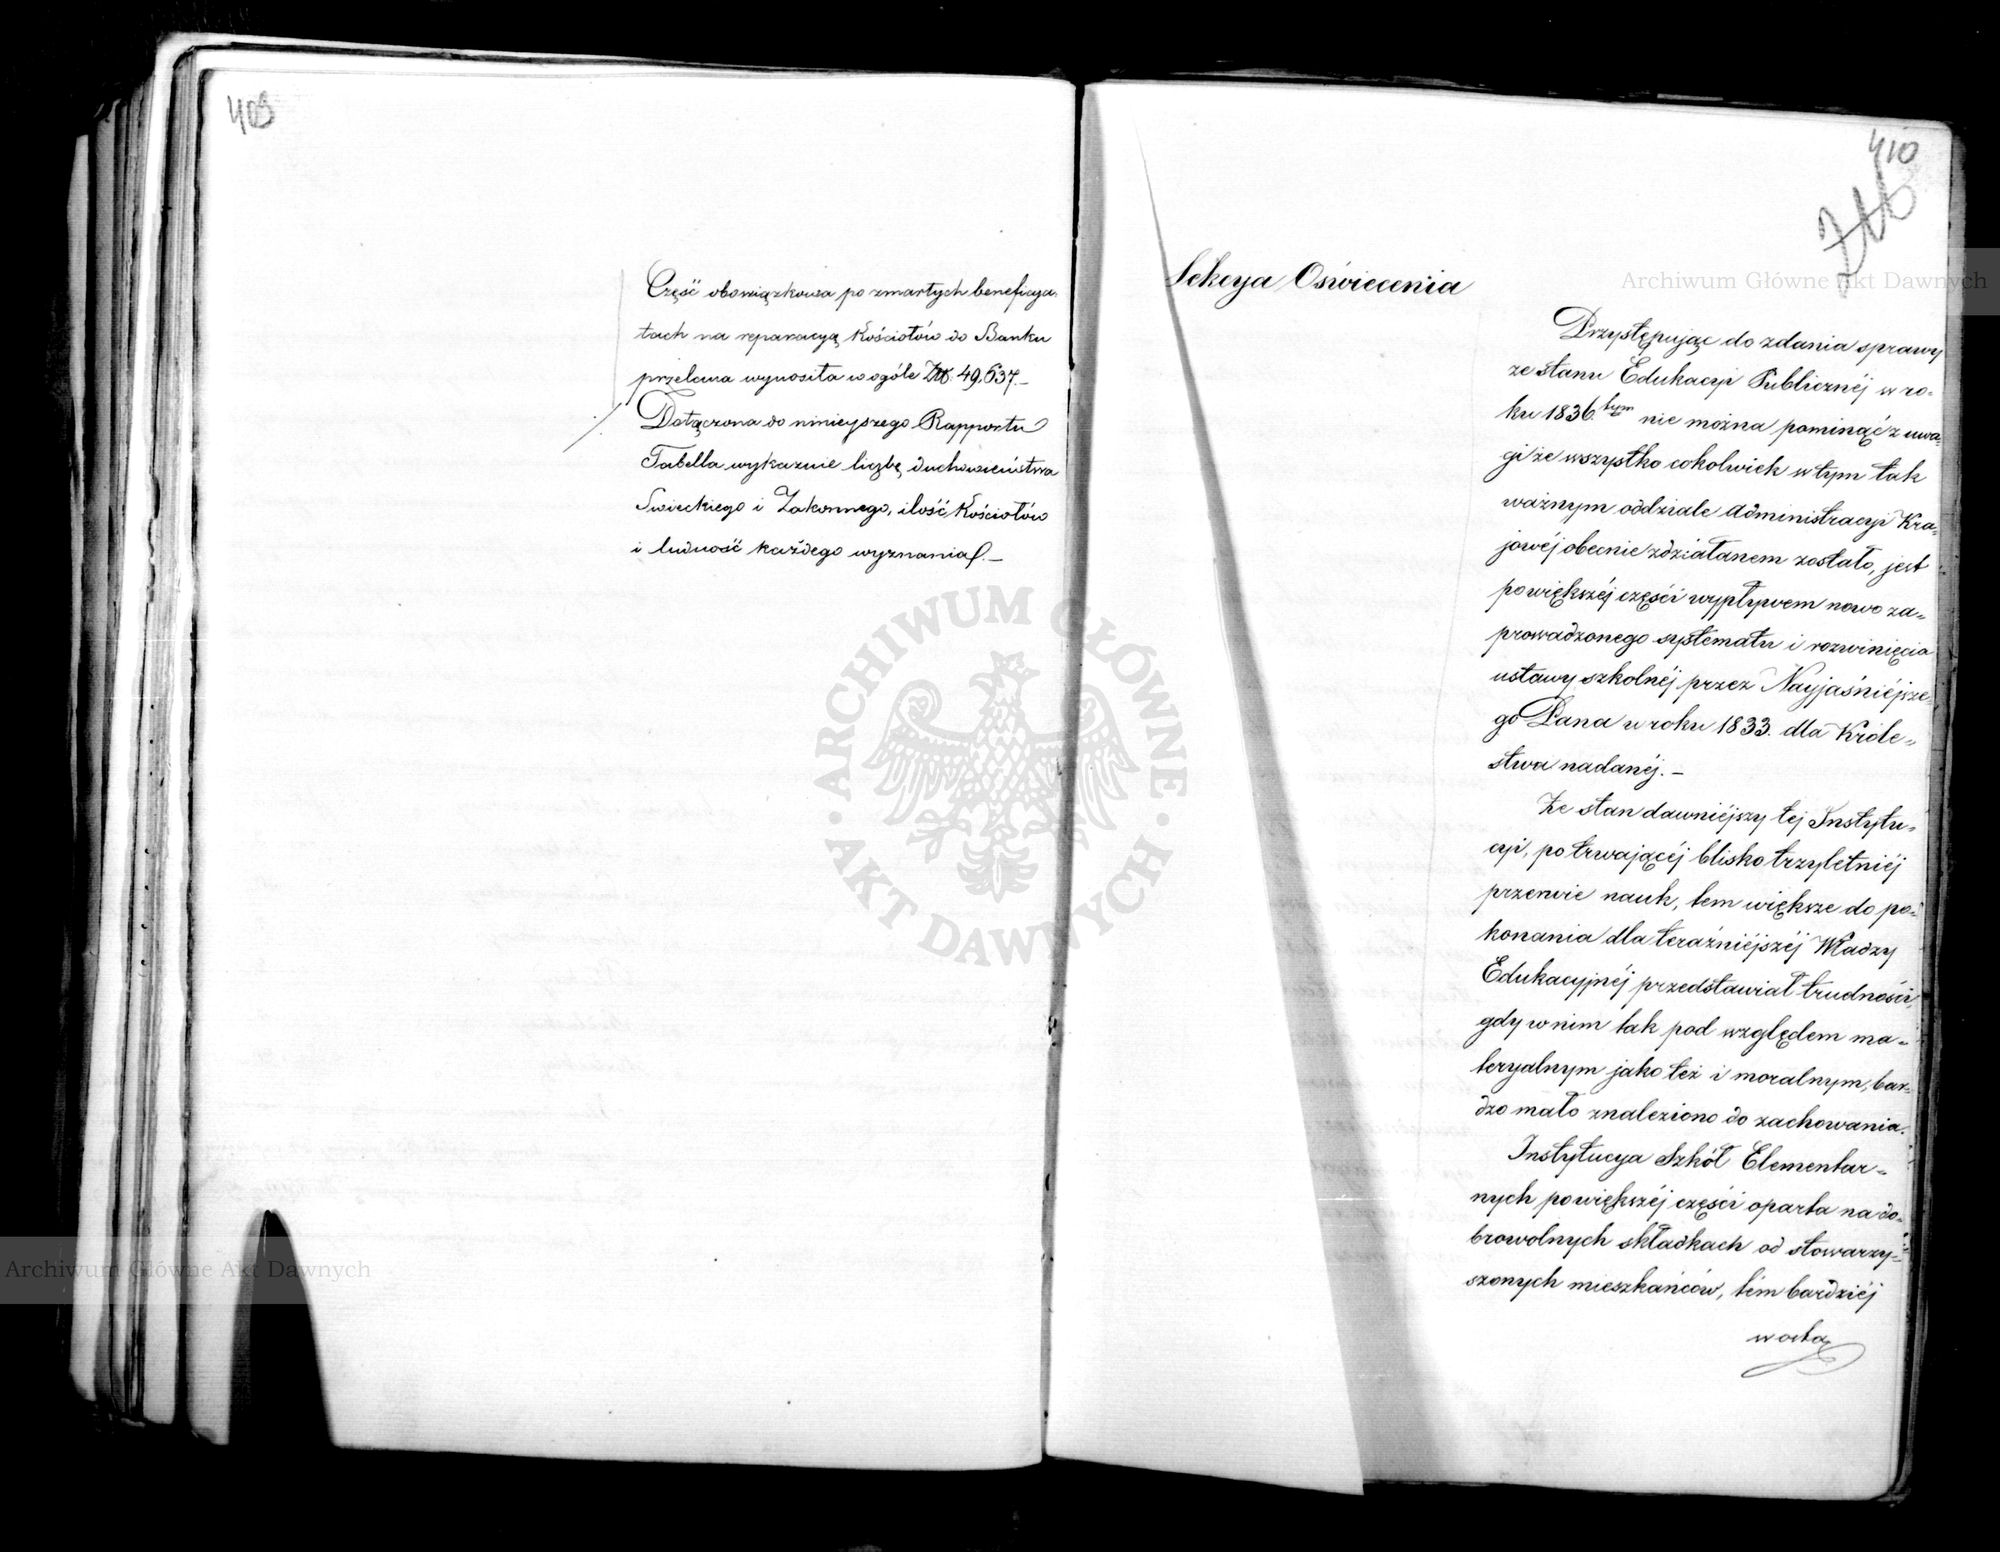 409
Część obowiązkowa po zmarłych beneficya-
tach na reparacyą Kościołów do Banku
przelana wynosiła w ogóle Złł. 49,637.–
Dołączona do ninieyszego Rapportu
Tabella wykazuie liczbę duchowieństwa
Swieckiego i Zakonnego, ilość Kościołów
i ludność każdego wyznania.–
410
Sekcya Oświecenia
Przystępując do zdania sprawy
ze stanu Edukacyi Publicznéj w ro-
ku 1836.tym nie można pominąć z uwa-
gi że wszystko cokolwiek w tym tak
ważnym oddziale Administracyi Kra-
jowéj obecnie zdziałanem zostało, jest
powiększéj części wypływem nowo za-
prowadzonego systematu i rozwinięcia
ustawy szkolnéj przez Nayjaśniéjsze-
go Pana w roku 1833. dla Króle-
stwa nadanéj.–
Że stan dawniéjszy téj Instytu-
cyi, po trwającéj blisko trzyletniéj
przerwie nauk, tem większe do po-
konania dla teraźniéjszéj Władzy
Edukacyjnéj przedstawiał trudności,
gdy w nim tak pod względem ma-
teryalnym jako też i moralnym, bar-
dzo mało znaleziono do zachowania.
Instytucya Szkół Elementar-
nych powiększéj części oparta na do-
browolnych składkach od stowarzy-
szonych mieszkańców, tém bardziéj
Archiwum Główne Akt Dawnych
Archiwum Główne Akt Dawnych
ARCHIWUM GŁÓWNE
AKT DAWNYCH